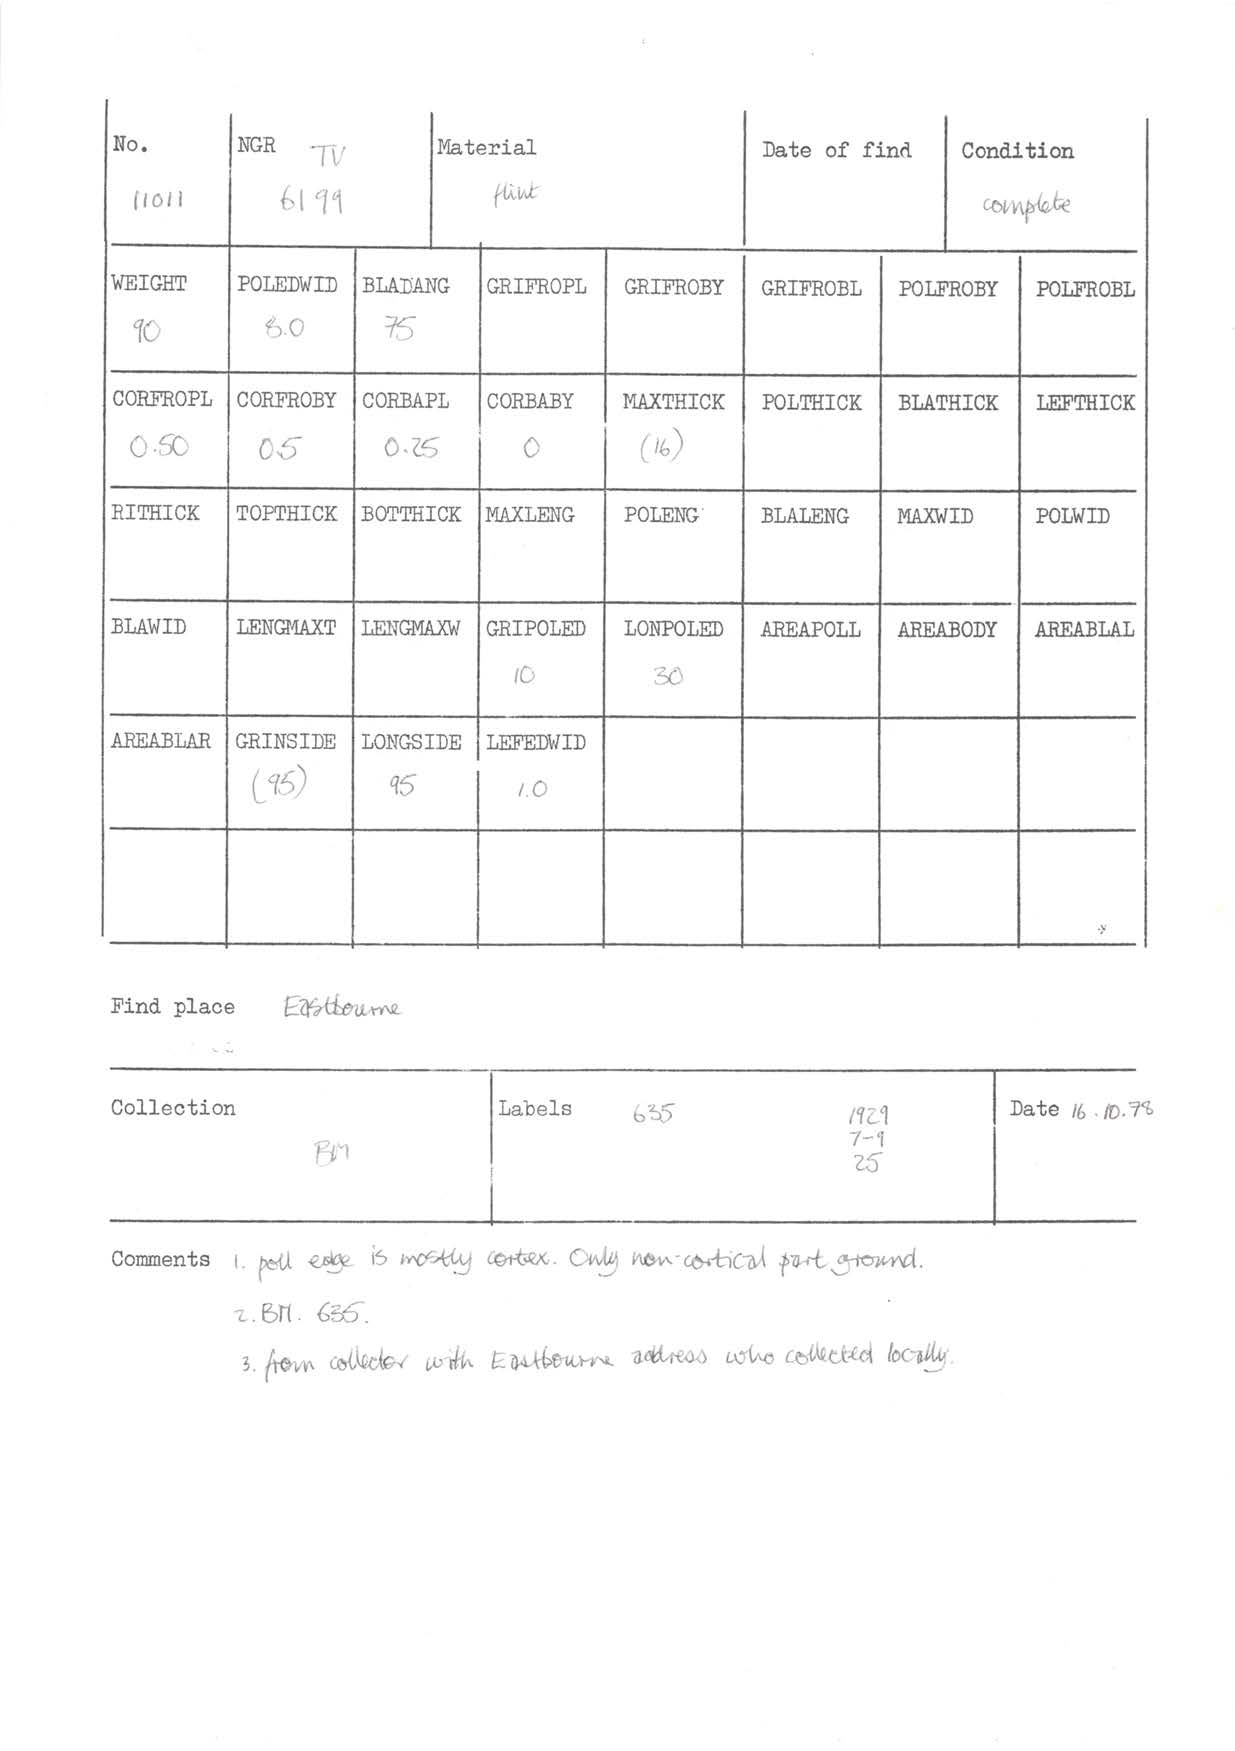 No. NGR TV Material Date of find Condition
11011 6199 flint complete
WEIGHT POLEDWID BLADANG GRIFROPL GRIFROBY GRIFROBL POLFROBY POLFROBL
90 8.0 75
CORFROPL CORFROBY CORBAPL CORBABY MAXTHICK POLTHICK BLATHICK LEFTHICK
0.50 0.5 0.25 0 (16)
RITHICK TOPTHICK BOTTHICK MAXLENG POLENG BLALENG MAXWID POLWID
BLAWID LENGMAXT LENGMAXW GRIPOLED LONPOLED AREAPOLL AREABODY AREABLAL
10 30
AREABLAR GRINSIDE LONGSIDE LEFEDWID
(95) 95 1.0
Find place Eastbourne
Collection Labels 635 1929 Date 16.10.78
7-9
BM 25
Comments 1. poll edge is mostly cortex. Only non-cortical part ground.
2. BM. 635.
3. from collector with Eastbourne address who collected locally.